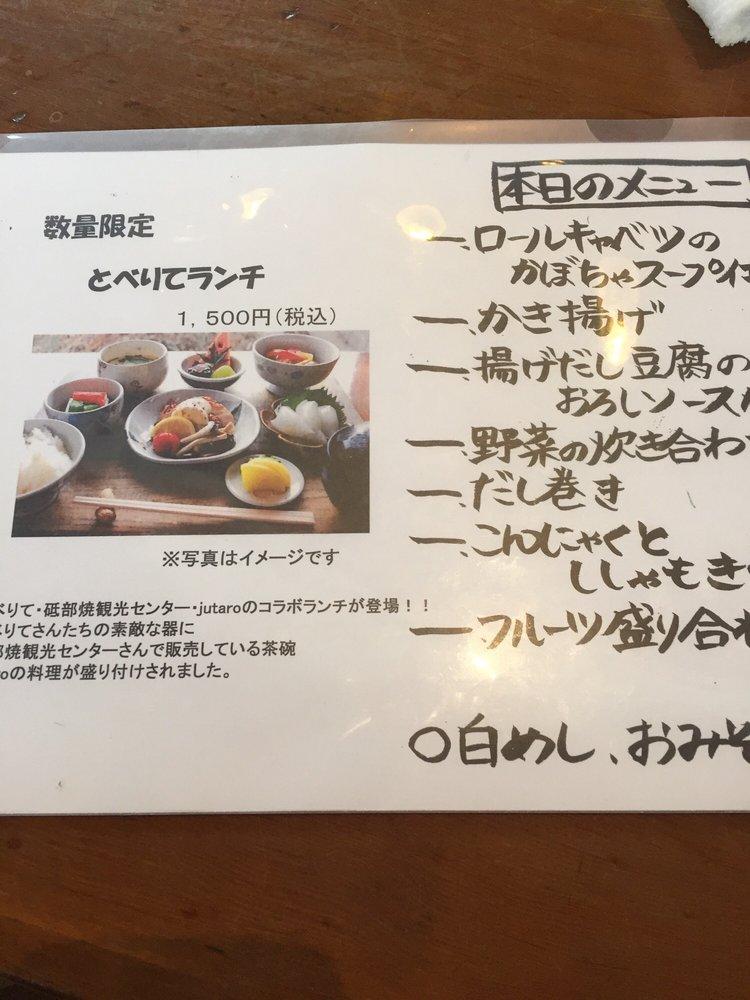 数量限定
とべりてランチ
1,500円(税込)
※写真はイメージです
べりて・砥部焼観光センター・jutaroのコラボランチが登場！！
べりてさんたちの素敵な器に
部焼観光センターさんで販売している茶碗
roの料理が盛り付けされました。
本日のメニュー
一、ロールキャベツの
かぼちゃスープ仕
一、かき揚げ
一、揚げだし豆腐の
おろしソース
一、野菜の炊き合わ
一、だし巻き
一、こんにゃくと
ししゃもき
一、フルーツ盛り合わ
○白めし、おみそ